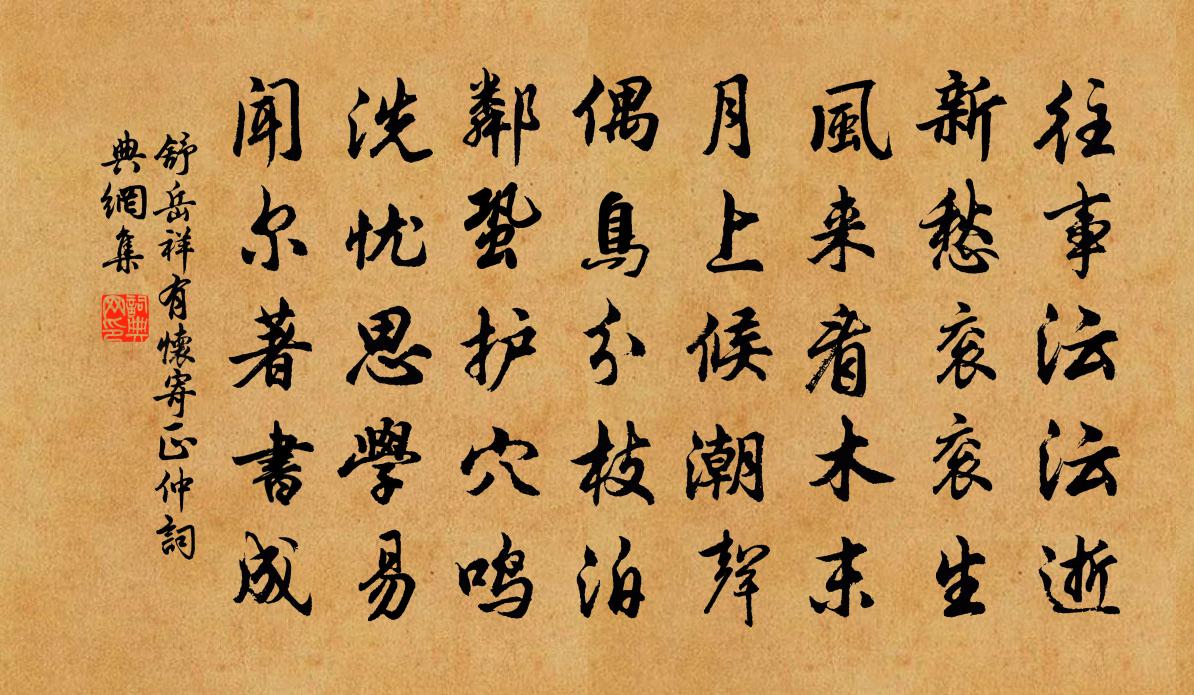 往事沄沄逝
新愁衮衮生
風来看木末
月上候潮聲
偶鳥分枝泊
鄰蛩护穴鸣
洗忧思學易
闻尔著書成
舒岳祥有懷寄正仲詞
典網集
詞典网印